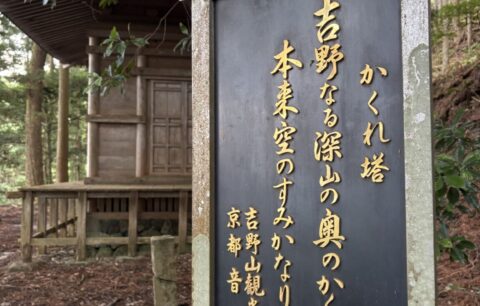 かくれ塔
吉野なる深山の奥のかく
本来空のすみかなり
吉野山観光
京都音